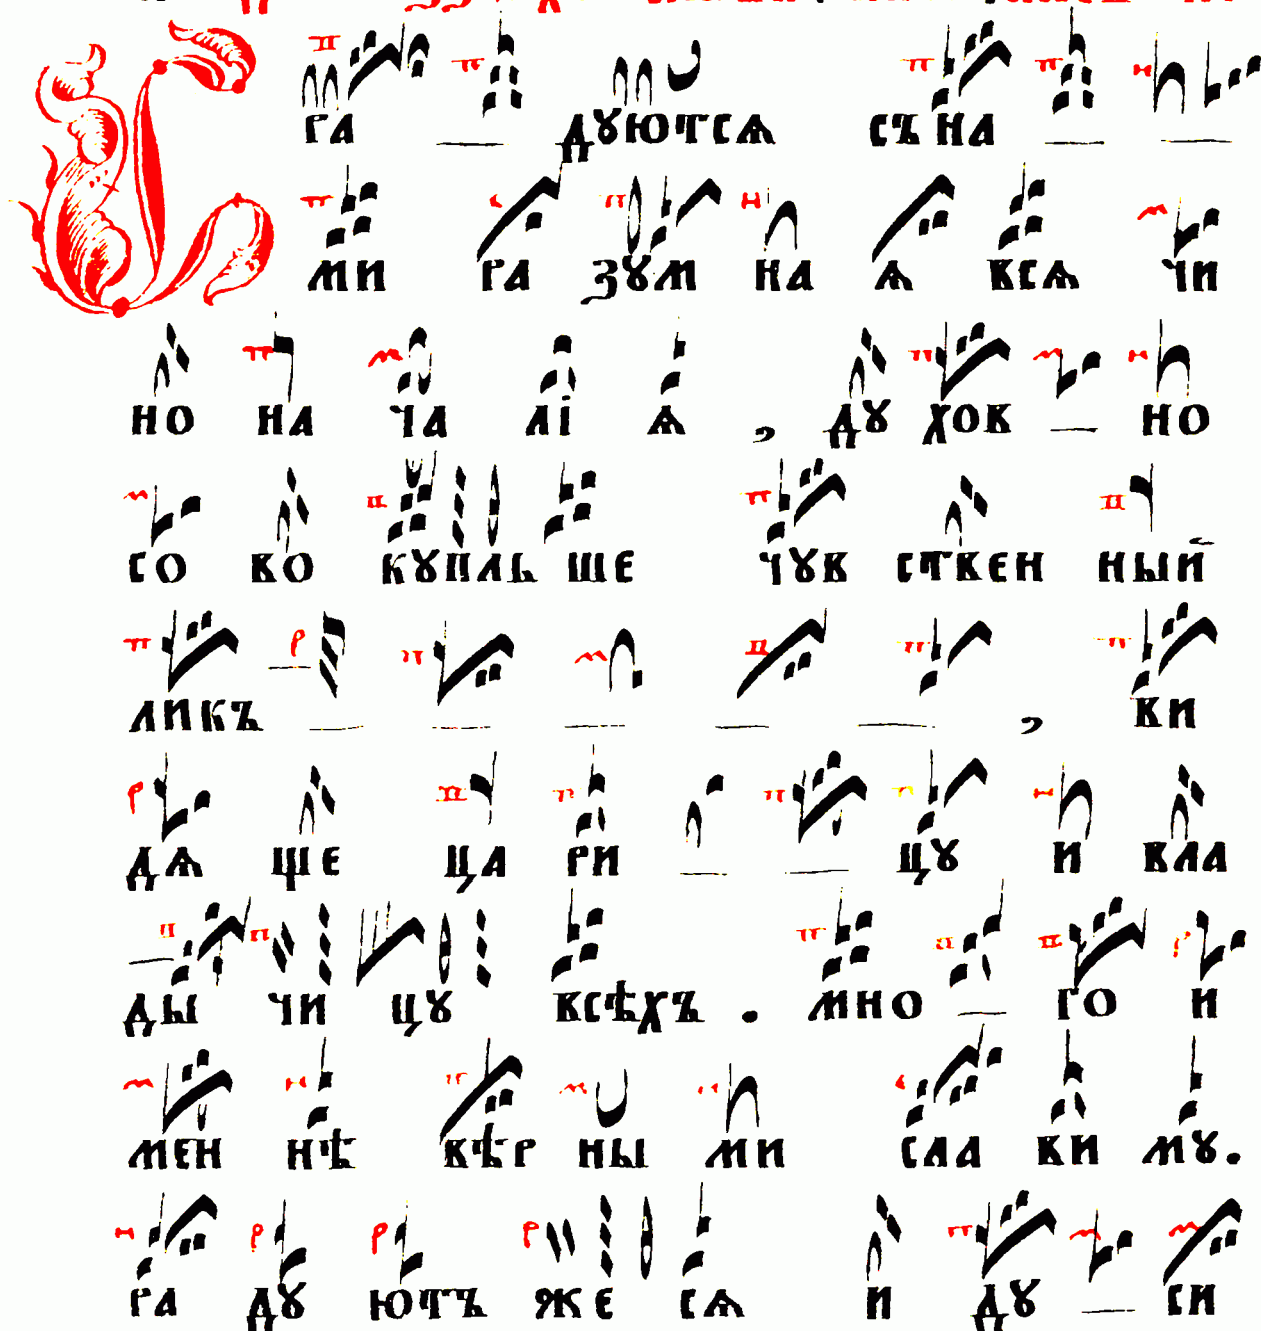 РА — ДꙋЮТСѦ СЪ НА — —
МИ РА ЗꙋМ НА Ѧ ВСѦ ЧИ
НО НА ЧА ЛІ Ѧ , Дꙋ ХОВ — НО
СО ВО КꙋПЛЬ ШЕ ЧꙋВ СТВЕН НЫЙ
ЛИКЪ — — — — — , ВИ
ДѦ ЩЕ ЦА РИ — — Цꙋ И ВЛА
— ДЫ ЧИ Цꙋ ВСѢХЪ . МНО — ГО И
МЕН НѢ ВѢР НЫ МИ СЛА ВИ Мꙋ.
РА Дꙋ ЮТЪ ЖЕ СѦ И Дꙋ — СИ